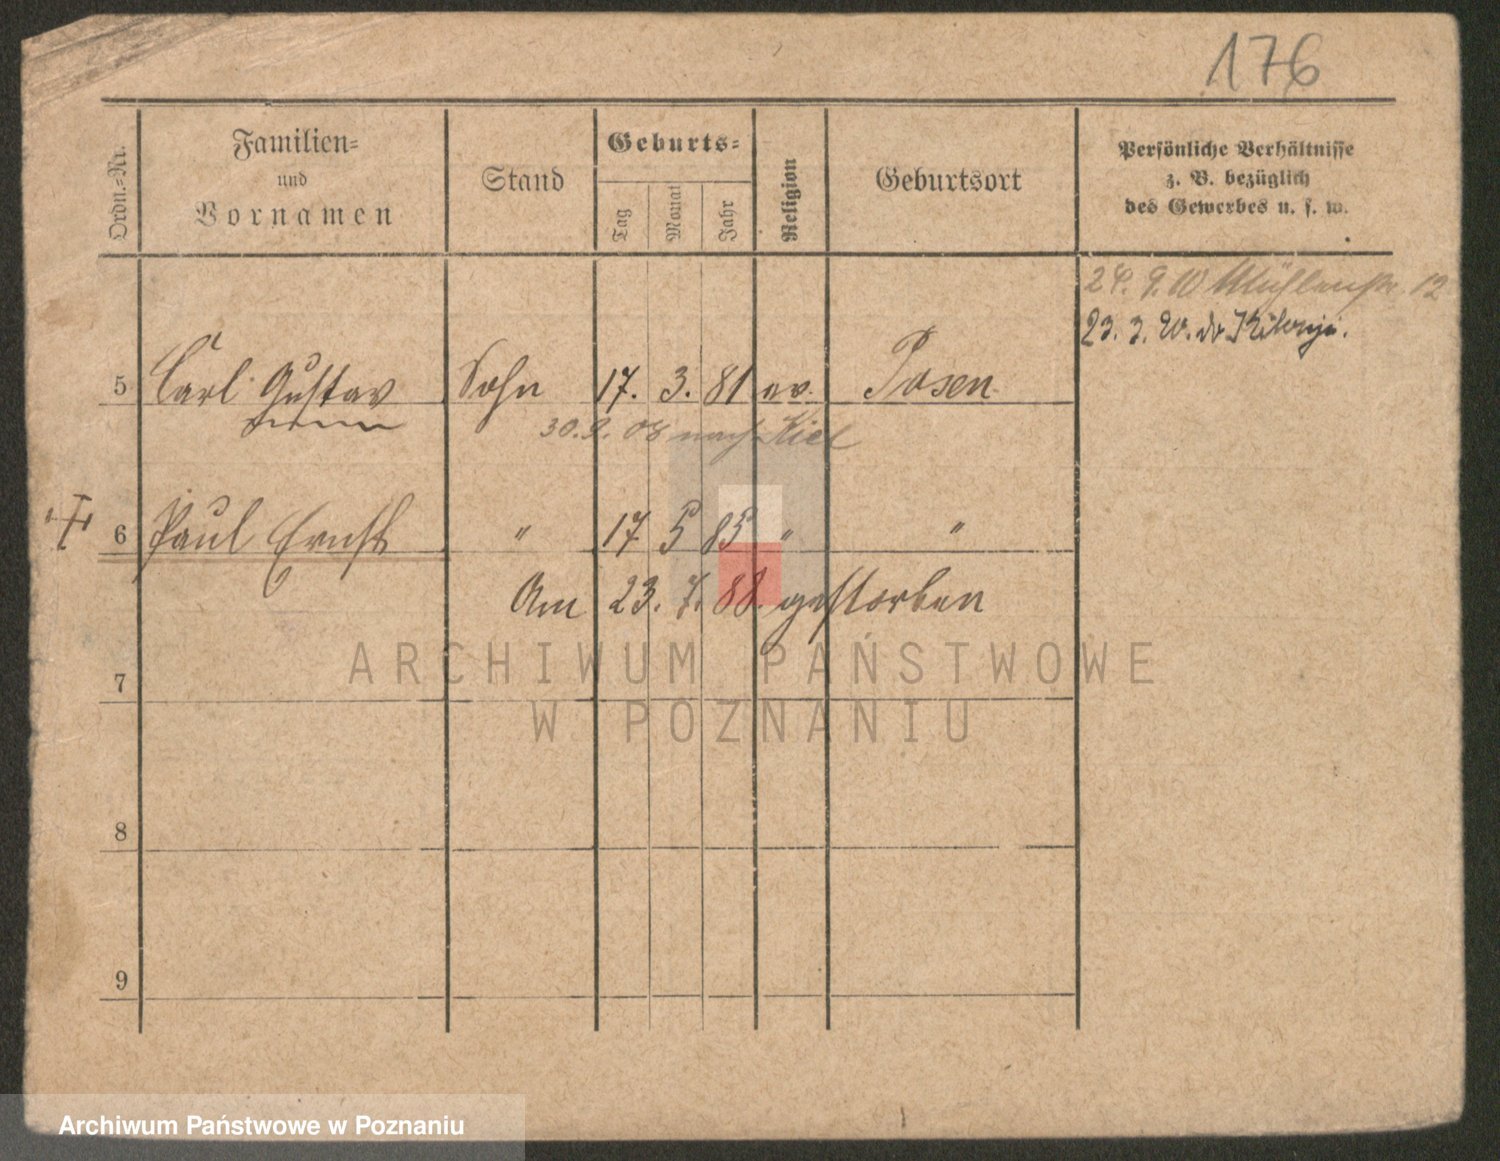 176
Ordn.-Nr.
Familien-
und
Vornamen
Stand
Geburts-
Tag
Monat
Jahr
Religion
Geburtsort
Persönliche Verhältnisse
z. B. bezüglich
des Gewerbes u. s. w.
24. 9. Mühlenstr. 12
23. 3.
5 Carl Gustav Sohn 17. 3. 81 ev. Posen
30.9.08 nach Kiel
6 Paul Ernst " 17 5 85 " "
Am 23. 7. 88. gestorben
7
8
9
ARCHIWUM PAŃSTWOWE
W POZNANIU
Archiwum Państwowe w Poznaniu